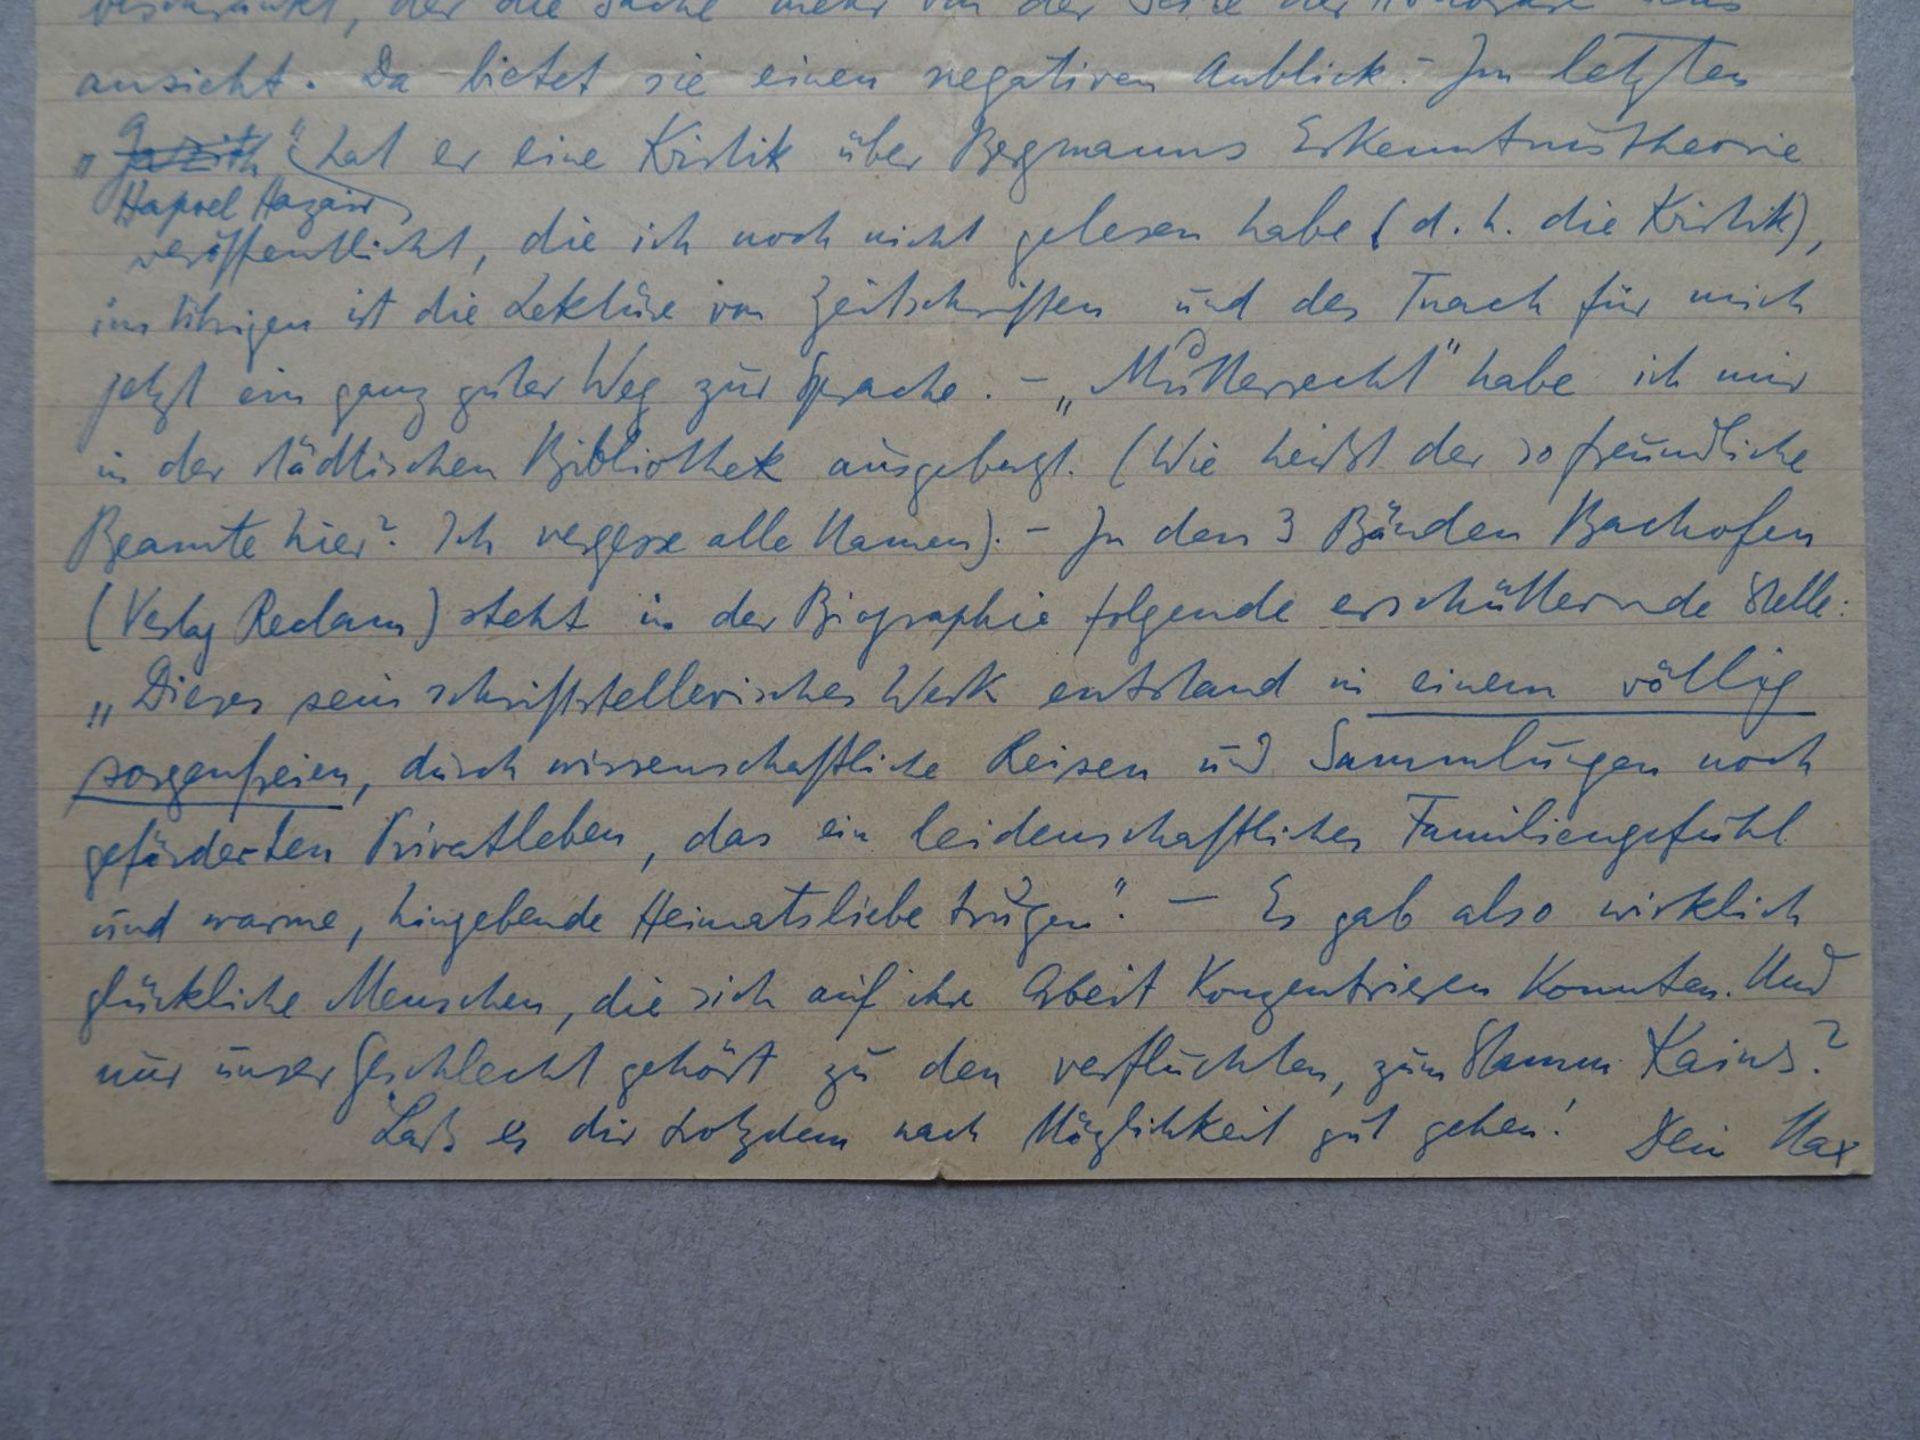 beschränkt, der die Sache mehr von der Seite der Honorare aus
ansieht. Da bietet sie einen negativen Anblick. – Im letzten
„Gazith“ hat er eine Kritik über Bergmanns Erkenntnistheorie
Hapoel Hazair
veröffentlicht, die ich noch nicht gelesen habe (d. h. die Kritik),
im übrigen ist die Lektüre von Zeitschriften und des Tnach für mich
jetzt ein ganz guter Weg zur Sprache. – „Mutterrecht“ habe ich mir
in der städtischen Bibliothek ausgeborgt. (Wie heißt der so freundliche
Beamte hier? Ich vergesse alle Namen). – In den 3 Bänden Bachofen
(Verlag Reclam) steht in der Biographie folgende erschütternde Stelle:
„Dieses sein schriftstellerisches Werk entstand in einem völlig
sorgenfreien, durch wissenschaftliche Reisen und Sammlungen noch
geförderten Privatleben, das ein leidenschaftliches Familiengefühl
und warme, hingebende Heimatsliebe trugen“. – Es gab also wirklich
glückliche Menschen, die sich auf ihre Arbeit konzentrieren konnten. Und
nur unser Geschlecht gehört zu den verfluchten, zum Stamm Kains?
Laß es dir trotzdem nach Möglichkeit gut gehen! Dein Max